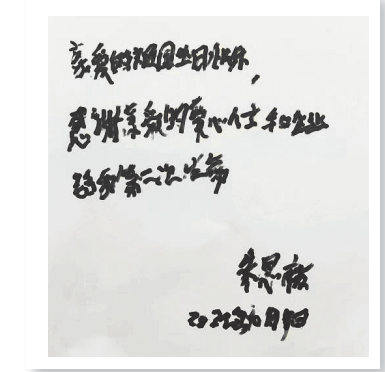 亲爱的祖国生日快乐,
感谢亲爱的爱心人士和企业
给我第二次生命
朱思
202年10月1日